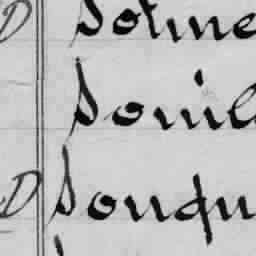 D Sotme
Souil
D Souqu